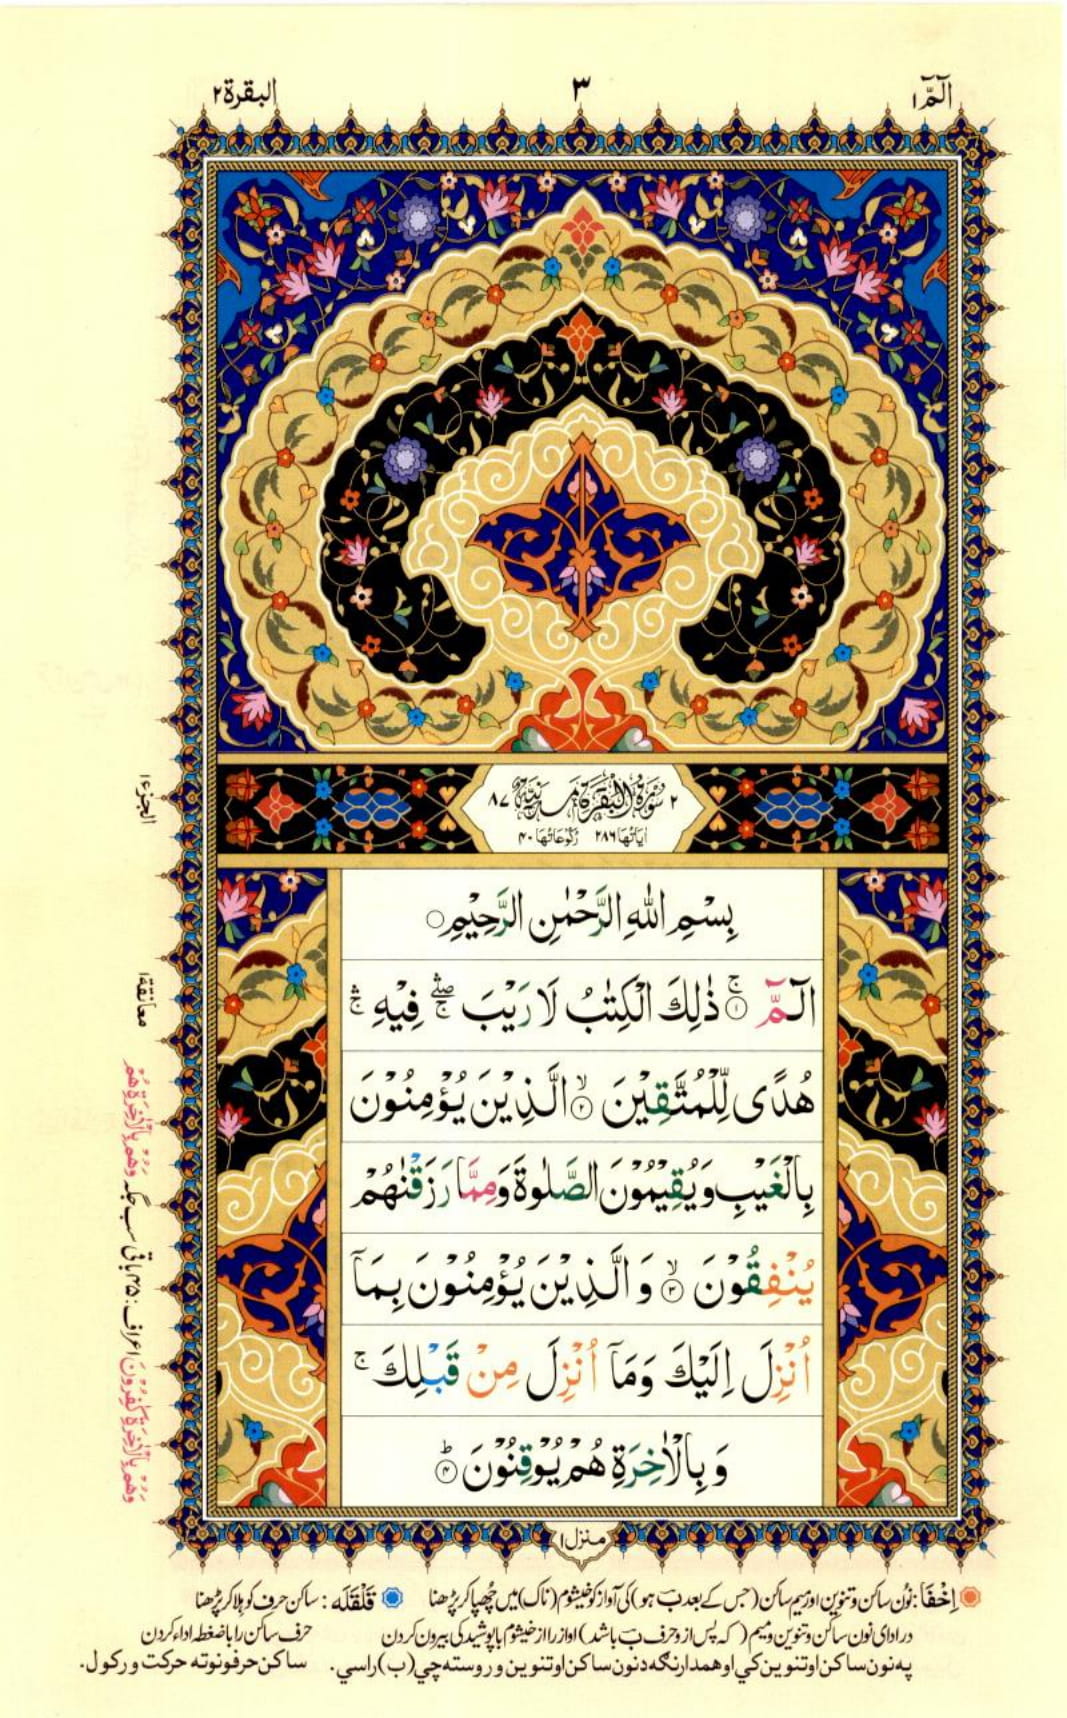 الٓمّٓ ١
٣
البقرة ٢
٢ سُوۡرَةُ الۡبَقَرَةِ مَدَنِيَّةٌ ٨٧
اٰيَاتُهَا ٢٨٦ رُكُوۡعَاتُهَا ٤٠
بِسْمِ اللّٰهِ الرَّحْمٰنِ الرَّحِيْمِ ○
الٓمّٓ ۚ ﴿١﴾ ذٰلِكَ الْكِتٰبُ لَا رَيْبَ ۛۖۚ فِيْهِ ۛۚ
هُدًى لِّلْمُتَّقِيْنَ ۙ﴿٢﴾ الَّذِيْنَ يُؤْمِنُوْنَ
بِالْغَيْبِ وَيُقِيْمُوْنَ الصَّلٰوةَ وَمِمَّا رَزَقْنٰهُمْ
يُنْفِقُوْنَ ۙ﴿٣﴾ وَالَّذِيْنَ يُؤْمِنُوْنَ بِمَآ
اُنْزِلَ اِلَيْكَ وَمَآ اُنْزِلَ مِنْ قَبْلِكَ ۚ
وَبِالْاٰخِرَةِ هُمْ يُوْقِنُوْنَ ؕ﴿٤﴾
منزل ١
الجزء ١
معانقة ١
وَهُمْ بِالْاٰخِرَةِ كٰفِرُوْنَ اعراف: ٤٥ باقی سب جگہ وَهُمْ بِالْاٰخِرَةِ هُمْ
اِخْفَا: نُون ساکن و تنوین اور میم ساکن (جس کے بعد ب ہو) کی آواز کو خیشوم (ناک) میں چُھپا کر پڑھنا
در ادای نون ساکن و تنوین و میم (که پس از و حرف ب باشد) آواز را از خیشوم با پوشیدگی بیرون کردن
په نون ساکن او تنوین کي او همدارنګه د نون ساکن او تنوین وروسته چي (ب) راسي.
قَلْقَلَه: ساکن حرف کو ہلا کر پڑھنا
حرف ساکن را با ضغطه اداء کردن
ساکن حرفونو ته حرکت ورکول.